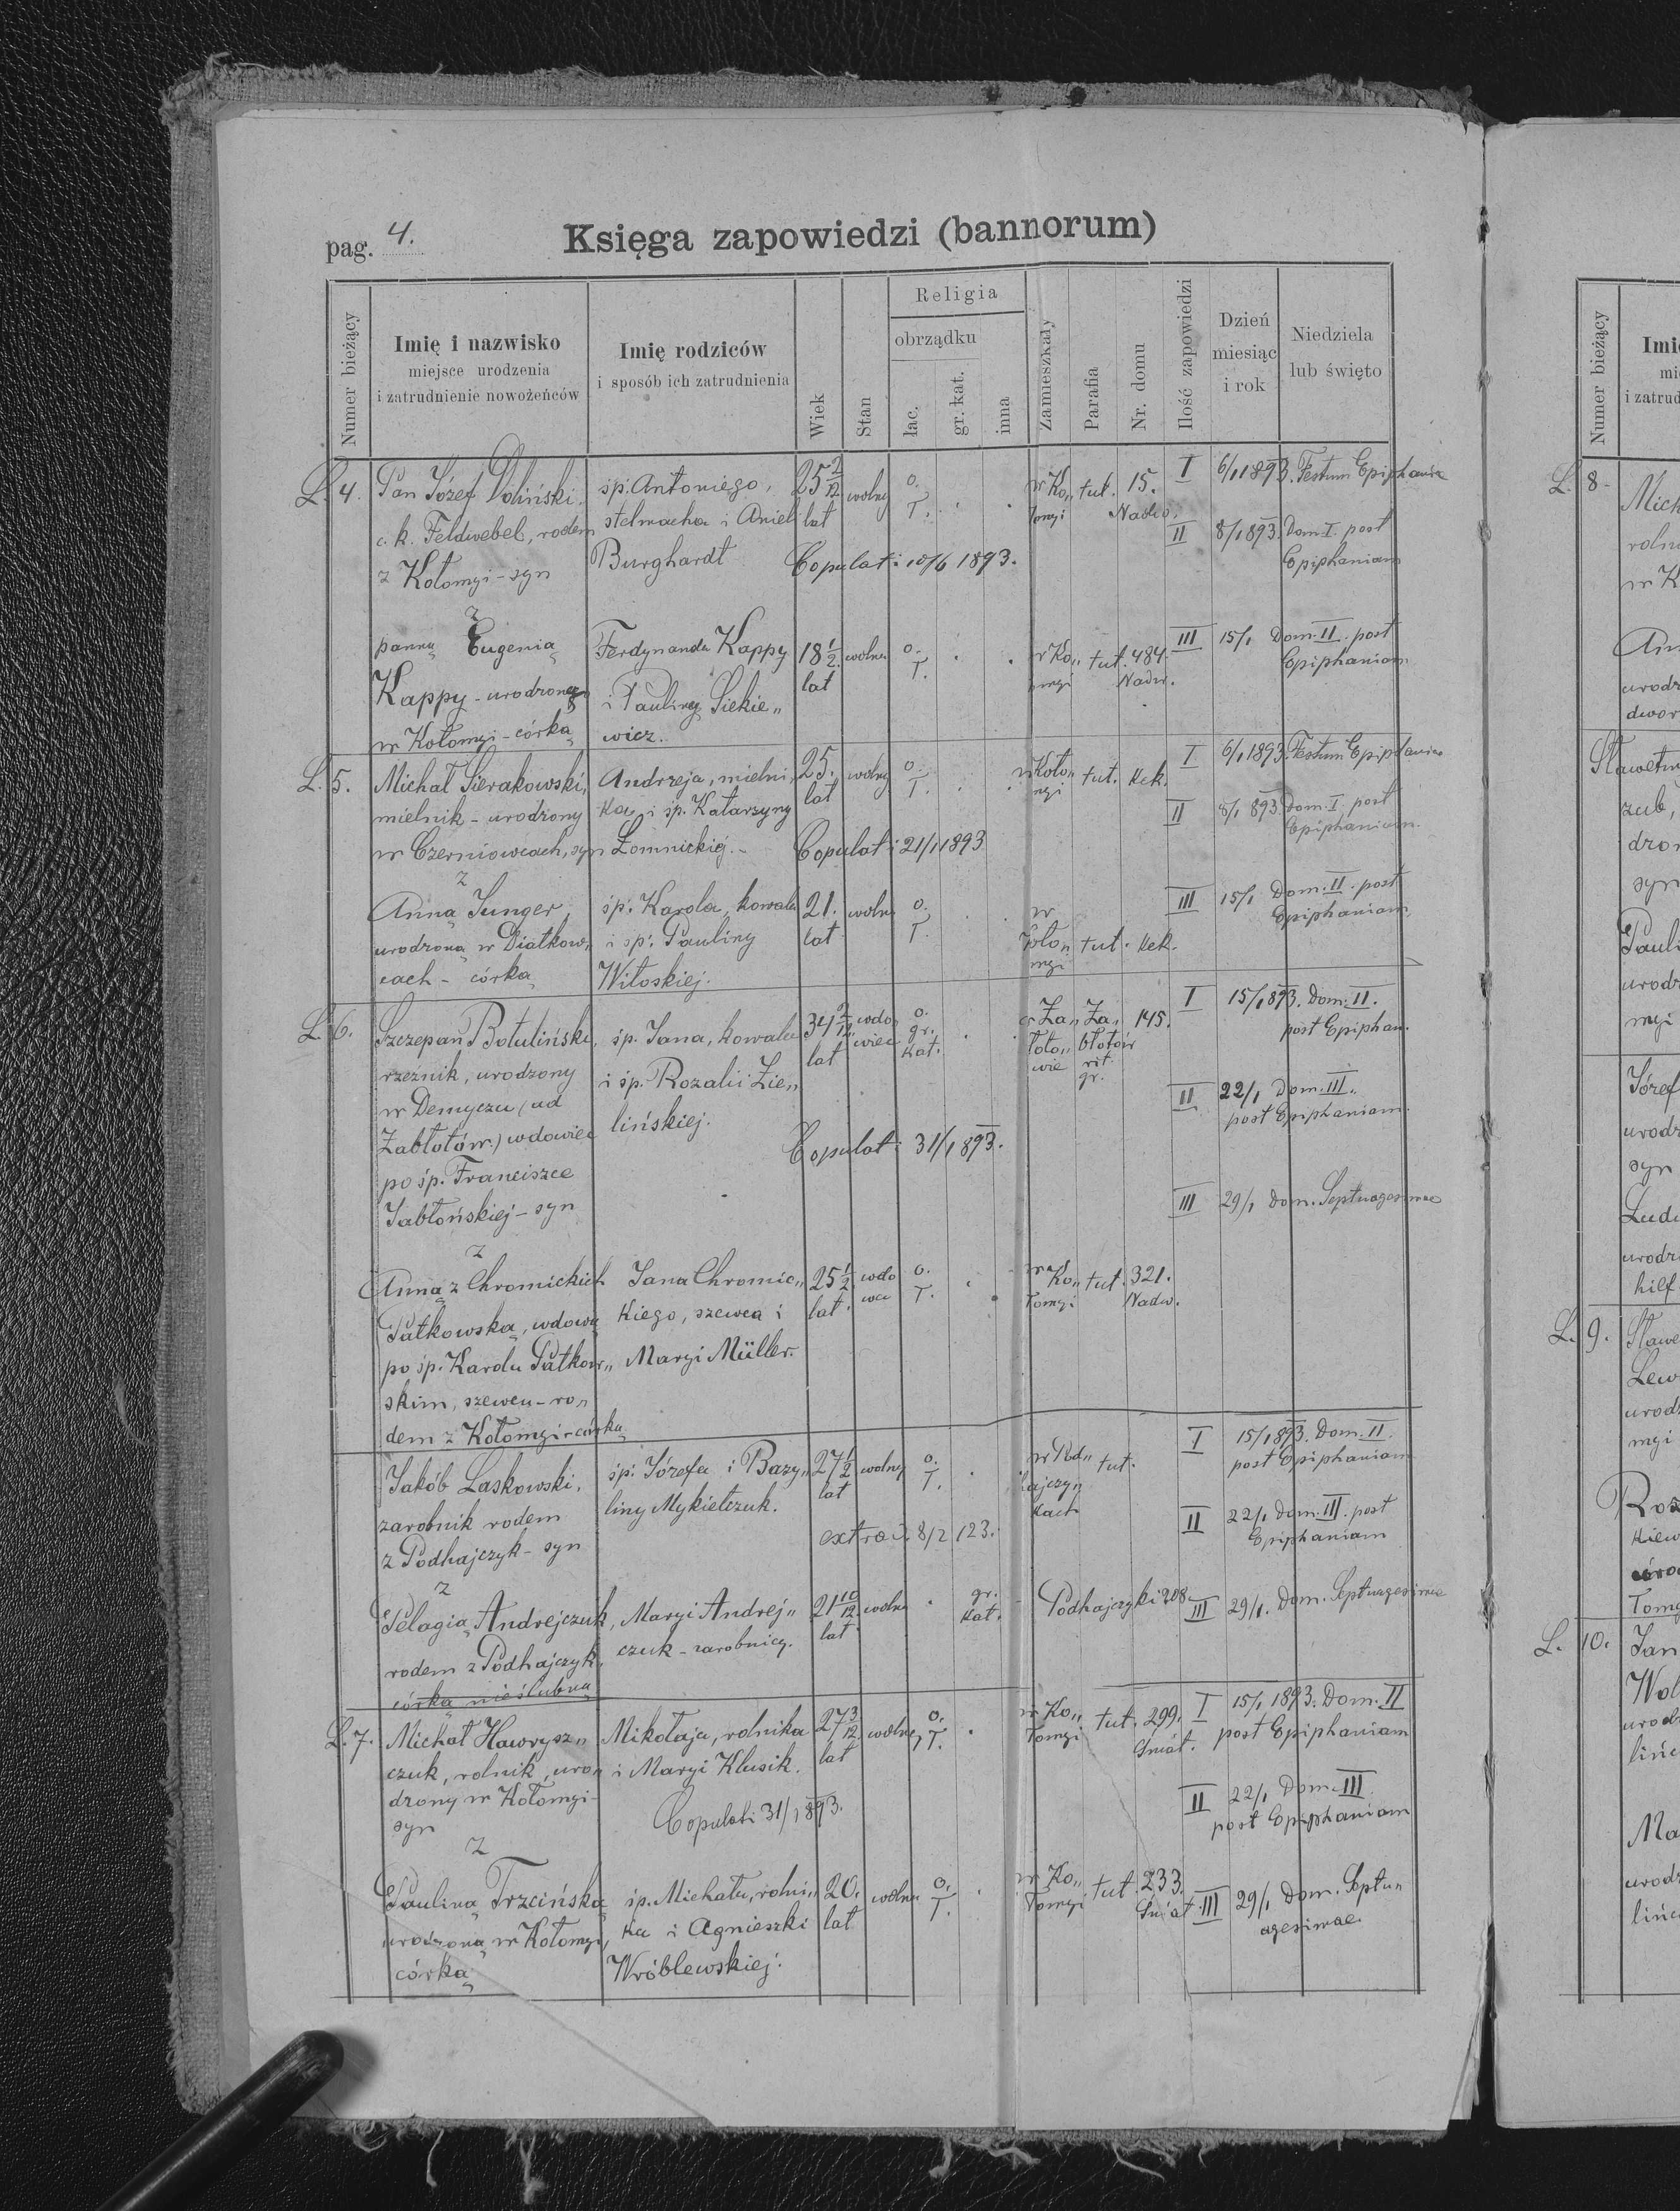 pag. 4.
Księga zapowiedzi (bannorum)
Numer bieżący
Imię i nazwisko
miejsce urodzenia
i zatrudnienie nowożeńców
Imię rodziców
i sposób ich zatrudnienia
Wiek
Stan
Religia
obrządku
łac.
gr. kat.
inna
Zamieszkały
Parafia
Nr. domu
Ilość zapowiedzi
Dzień
miesiąc
i rok
Niedziela
lub święto
L. 4.
Pan Józef Doliński,
c. k. Feldwebel, rodem
z Kołomyi - syn
śp. Antoniego,
stelmacha i Anieli
Burghardt
25 2/12
lat
wolny
o.
ł.
w Ko„
łomyi
tut.
15.
Nadw.
Copulati 10/6 1893.
I 6/1 1893. Festum Epiphaniae
II 8/1 893. Dom I. post
Epiphaniam
z
panną Eugenią
Kappy - urodzoną
w Kołomyi - córką
Ferdynanda Kappy
i Pauliny Siekie„
wicz.
18 1/2
lat
wolna
o.
ł.
w Ko„
łomyi
tut. 484.
Nadw.
III 15/1 Dom. II. post
Epiphaniam
L. 5.
Michał Sierakowski,
mielnik - urodzony
w Czerniowcach, syn
Andrzeja, mielni„
ka, i śp. Katarzyny
Łomnickiej. -
25.
lat
wolny
o.
ł.
w Koło„
myi
tut. Kek.
Copulati 21/1 1893
I 6/1 1893. Festum Epiphaniae
II 8/1 893. Dom. I. post
Epiphaniam.
z
Anną Junger
urodzoną w Diatkow„
cach - córką
śp. Karola, kowala
i śp. Pauliny
Witoskiej.
21.
lat
wolna
o.
ł.
w
Koło„
myi
tut. Kek.
III 15/1 Dom. II. post
Epiphaniam
L. 6.
Szczepan Botuliński,
rzeźnik, urodzony
w Demyczu (ad
Zabłotów.) wdowiec
po śp. Franciszce
Jabłońskiej - syn
śp. Jana, kowala
i śp. Rozalii Zie„
lińskiej.
34 2/12
lat
wdo„
wiec
o.
gr.
kat.
w Za„
błoto„
wie
Za„
błotów
rit.
gr.
145.
Copulati 31/1 893.
I 15/1 893. Dom. II.
post Epiphan.
II 22/1 Dom. III.
post Epiphaniam.
III 29/1 Dom. Septuagesimae
z
Anną z Chromickich
Patkowską, wdową
po śp. Karolu Patkow„
skim, szewcu - ro„
dem z Kołomyi - córką
Jana Chromic„
kiego, szewca i
Maryi Müller.
25 1/2
lat.
wdo
wa
o.
ł.
w Ko„
łomyi
tut. 321.
Nadw.
Jakób Laskowski,
zarobnik rodem
z Podhajczyk - syn
śp. Józefa i Bazy„
liny Mykietczuk.
27 1/2
lat
wolny
o.
ł.
w Pod„
hajczy„
kach
tut.
extrad. 8/2 123.
I 15/1 893. Dom. II.
post Epiphaniam
II 22/1 Dom. III. post
Epiphaniam
z
Pelagią Andrejczuk,
rodem z Podhajczyk,
córką nieślubną
Maryi Andrej„
czuk - zarobnicy.
21 10/12
lat
wolna
gr.
kat.
Podhajczyki 208
III 29/1. Dom. Septuagesimae
L. 7.
Michał Hawrysz„
czuk, rolnik, uro„
dzony w Kołomyi -
syn
Mikołaja, rolnika
i Maryi Klusik.
27 3/12
lat
wolny
o.
ł.
w Ko„
łomyi
tut. 299.
Śniat.
Copulati 31/1 893.
I 15/1 1893. Dom. II
post Epiphaniam
II 22/1 Dom. III
post Epiphaniam
z
Pauliną Trzcińską
urodzoną w Kołomyi,
córką
śp. Michała, rolni„
ka i Agnieszki
Wróblewskiej.
20.
lat
wolna
o.
ł.
w Ko„
łomyi
tut. 233.
Śniat.
III 29/1 Dom. Septu„
agesimae.
Numer bieżący
L. 8.
L. 9.
L. 10.